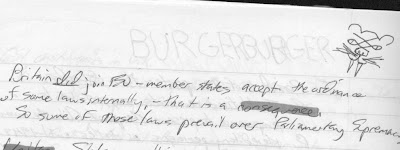 BURGERBURGER
Britain did join EU - member states accept the ordinance
of some laws internally, - that is a consequence.
So some of those laws prevail over Parliamentary Supremacy